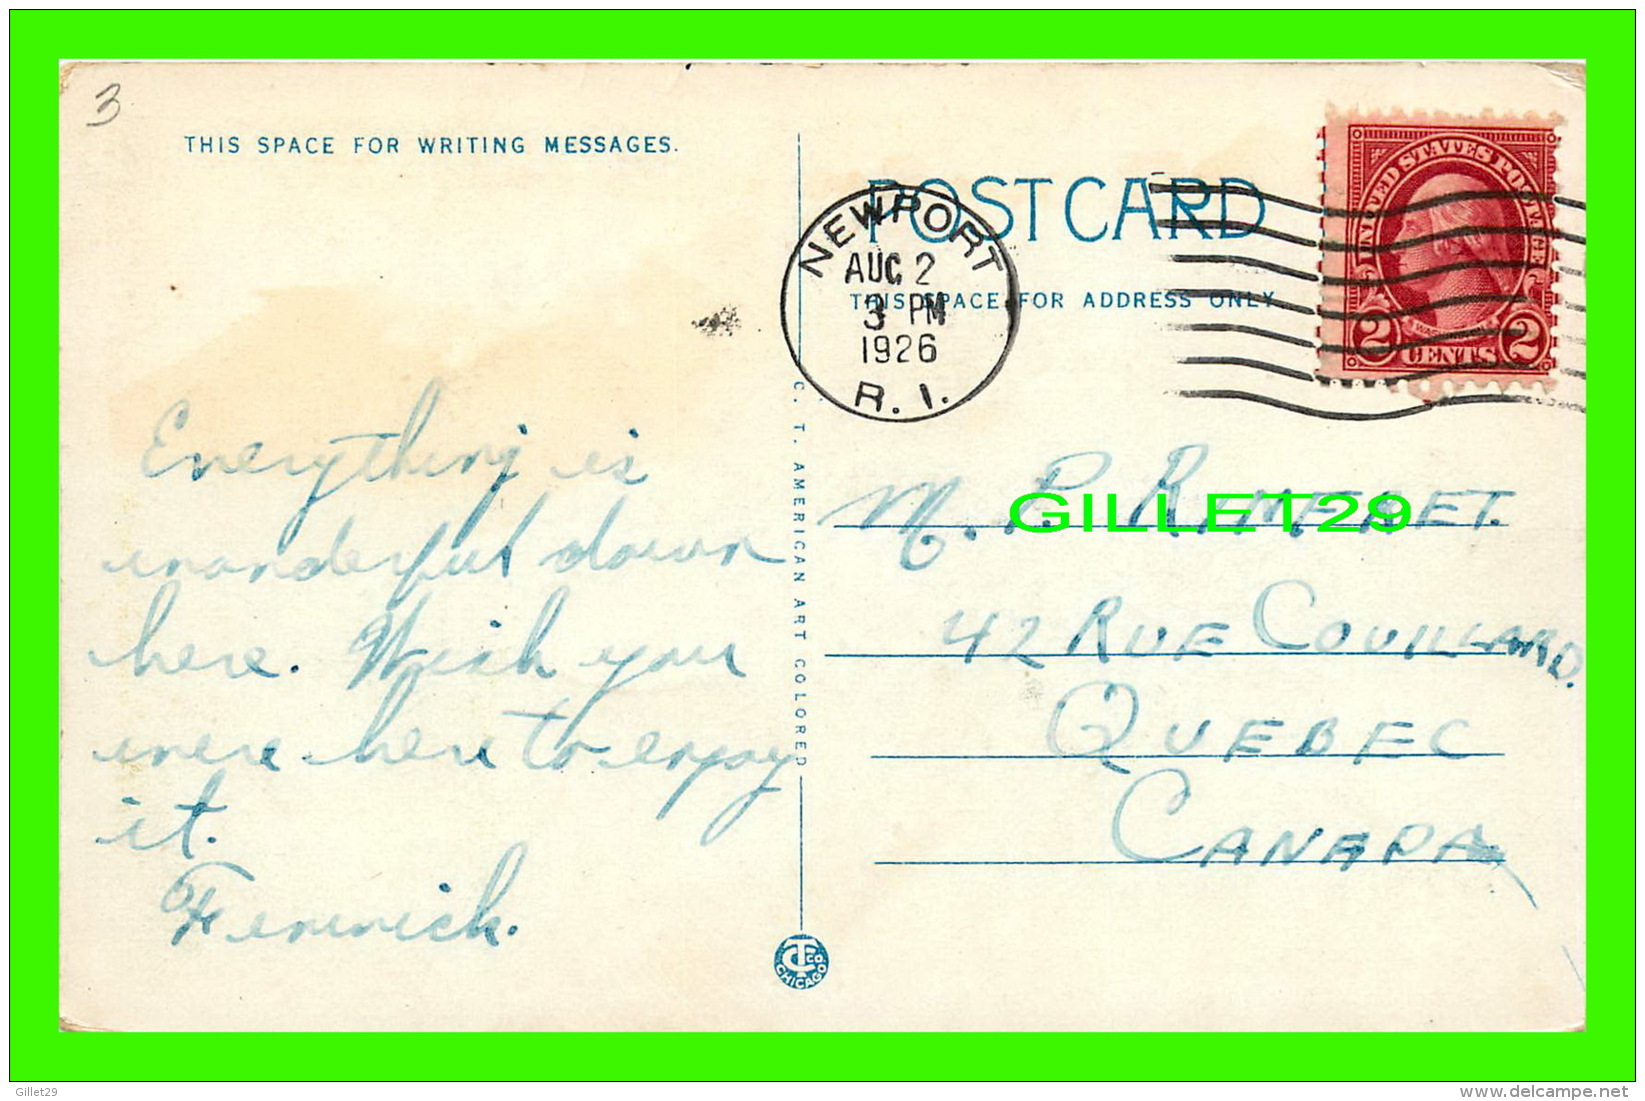 3
THIS SPACE FOR WRITING MESSAGES.
POST CARD
THIS SPACE FOR ADDRESS ONLY
NEWPORT
AUG 2
3 PM
1926
R. I.
UNITED STATES POSTAGE
WASHINGTON
2 CENTS 2
Everything is
wonderful down
here. Wish you
were here to enjoy
it.
Fenwick.
C. T. AMERICAN ART COLORED
CT CO. CHICAGO
M. P.
GILLET29
42 RUE COUILLARD.
QUEBEC
CANADA
Gillet29
www.delcampe.net